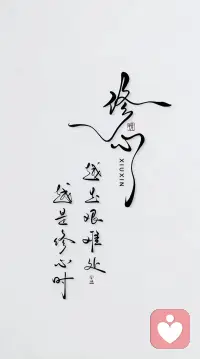 修心
XIUXIN
越去艰难处
越是修心时